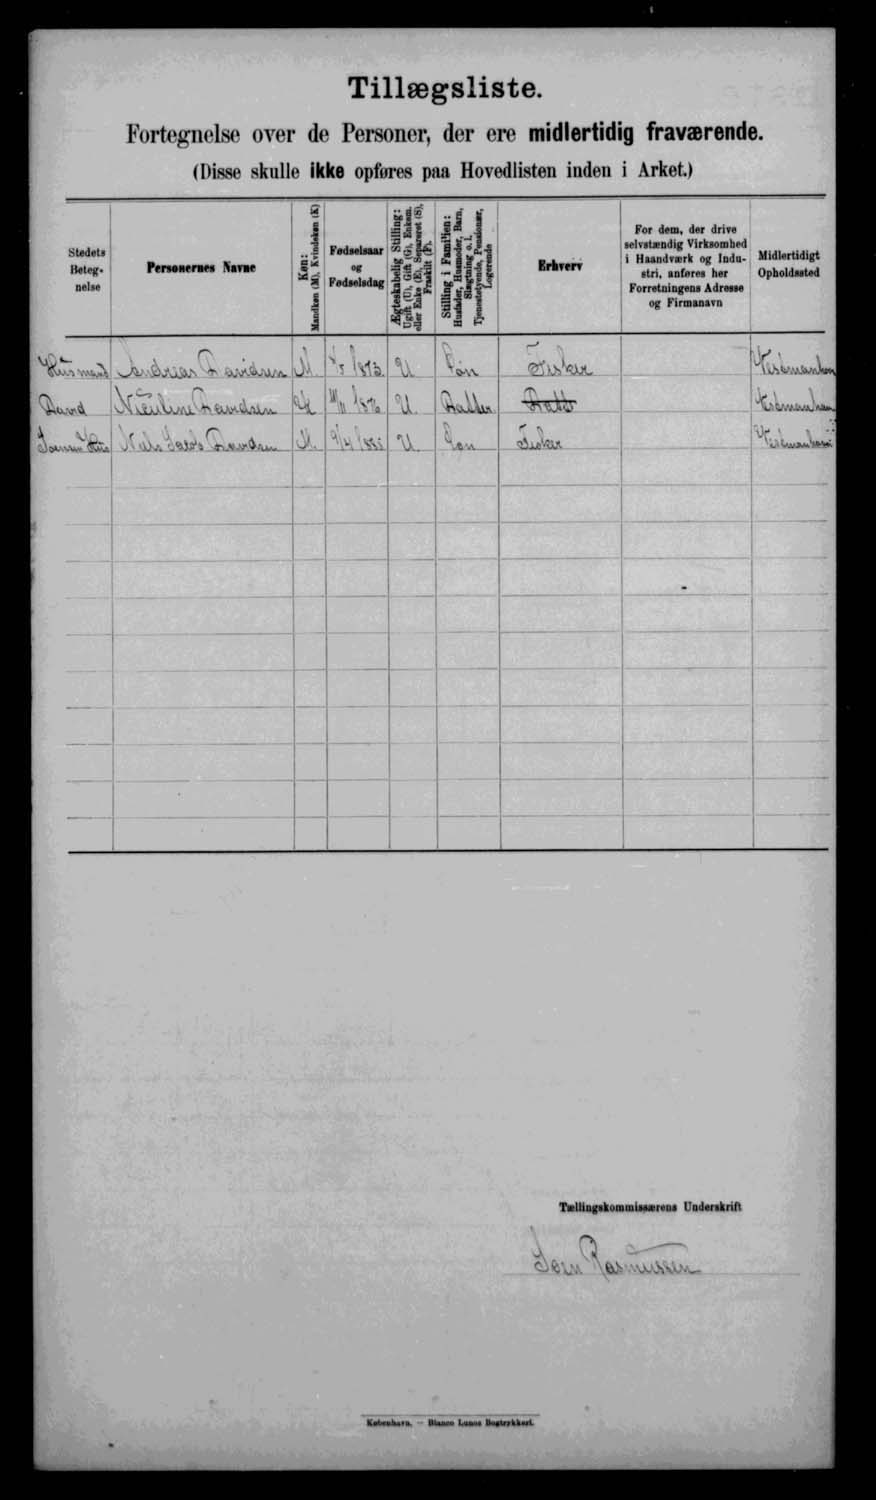 Tillægsliste.
Fortegnelse over de Personer, der ere midlertidig fraværende.
(Disse skulle ikke opføres paa Hovedlisten inden i Arket.)
Stedets
Beteg-
nelse
Personernes Navne
Køn:
Mandkøn (M), Kvindekøn (K)
Fødselsaar
og
Fødselsdag
Ægteskabelig Stilling:
Ugift (U), Gift (G), Enkem.
eller Enke (E), Separeret (S),
Fraskilt (F).
Stilling i Familien:
Husfader, Husmoder, Barn,
Slægtning o. l.
Tjenestetyende, Pensionær,
Logerende
Erhverv
For dem, der drive
selvstændig Virksomhed
i Haandværk og Indu-
stri, anføres her
Forretningens Adresse
og Firmanavn
Midlertidigt
Opholdssted
Husmand Andreas Davidsen M. 1873 U Søn Fisker Vestmanhavn
David Davidsen K 1876 U Datter Vestmanhavn
Hus Niels Jacob Davidsen M. U Søn Fisker Vestmanhavn
Tællingskommissærens Underskrift
Joen Rasmussen
København. — Bianco Lunos Bogtrykkeri.